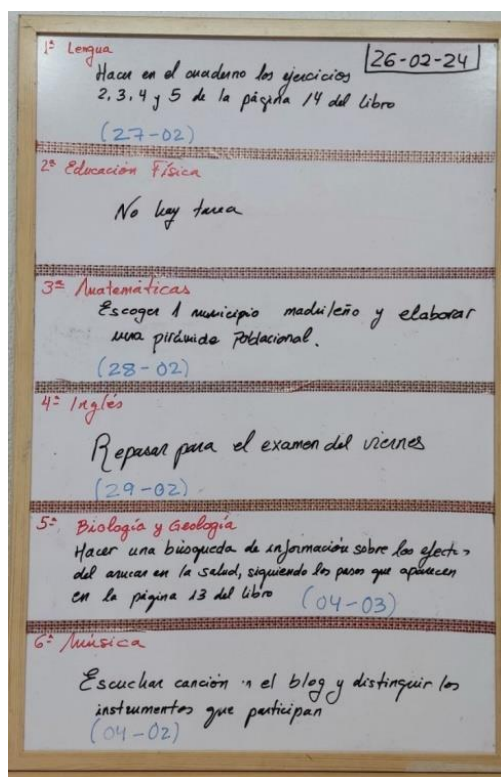 1ª Lengua
26-02-24
Hacer en el cuaderno los ejercicios
2, 3, 4 y 5 de la página 14 del libro
(27-02)
2ª Educación Física
No hay tarea
3ª Matemáticas
Escoger 1 municipio madrileño y elaborar
una pirámide Poblacional.
(28-02)
4ª Inglés
Repasar para el examen del viernes
(29-02)
5ª Biología y Geología
Hacer una búsqueda de información sobre los efectos
del azucar en la salud, siguiendo los pasos que aparecen
en la página 13 del libro (04-03)
6ª Música
Escuchar canción en el blog y distinguir los
instrumentos que participan
(04-02)